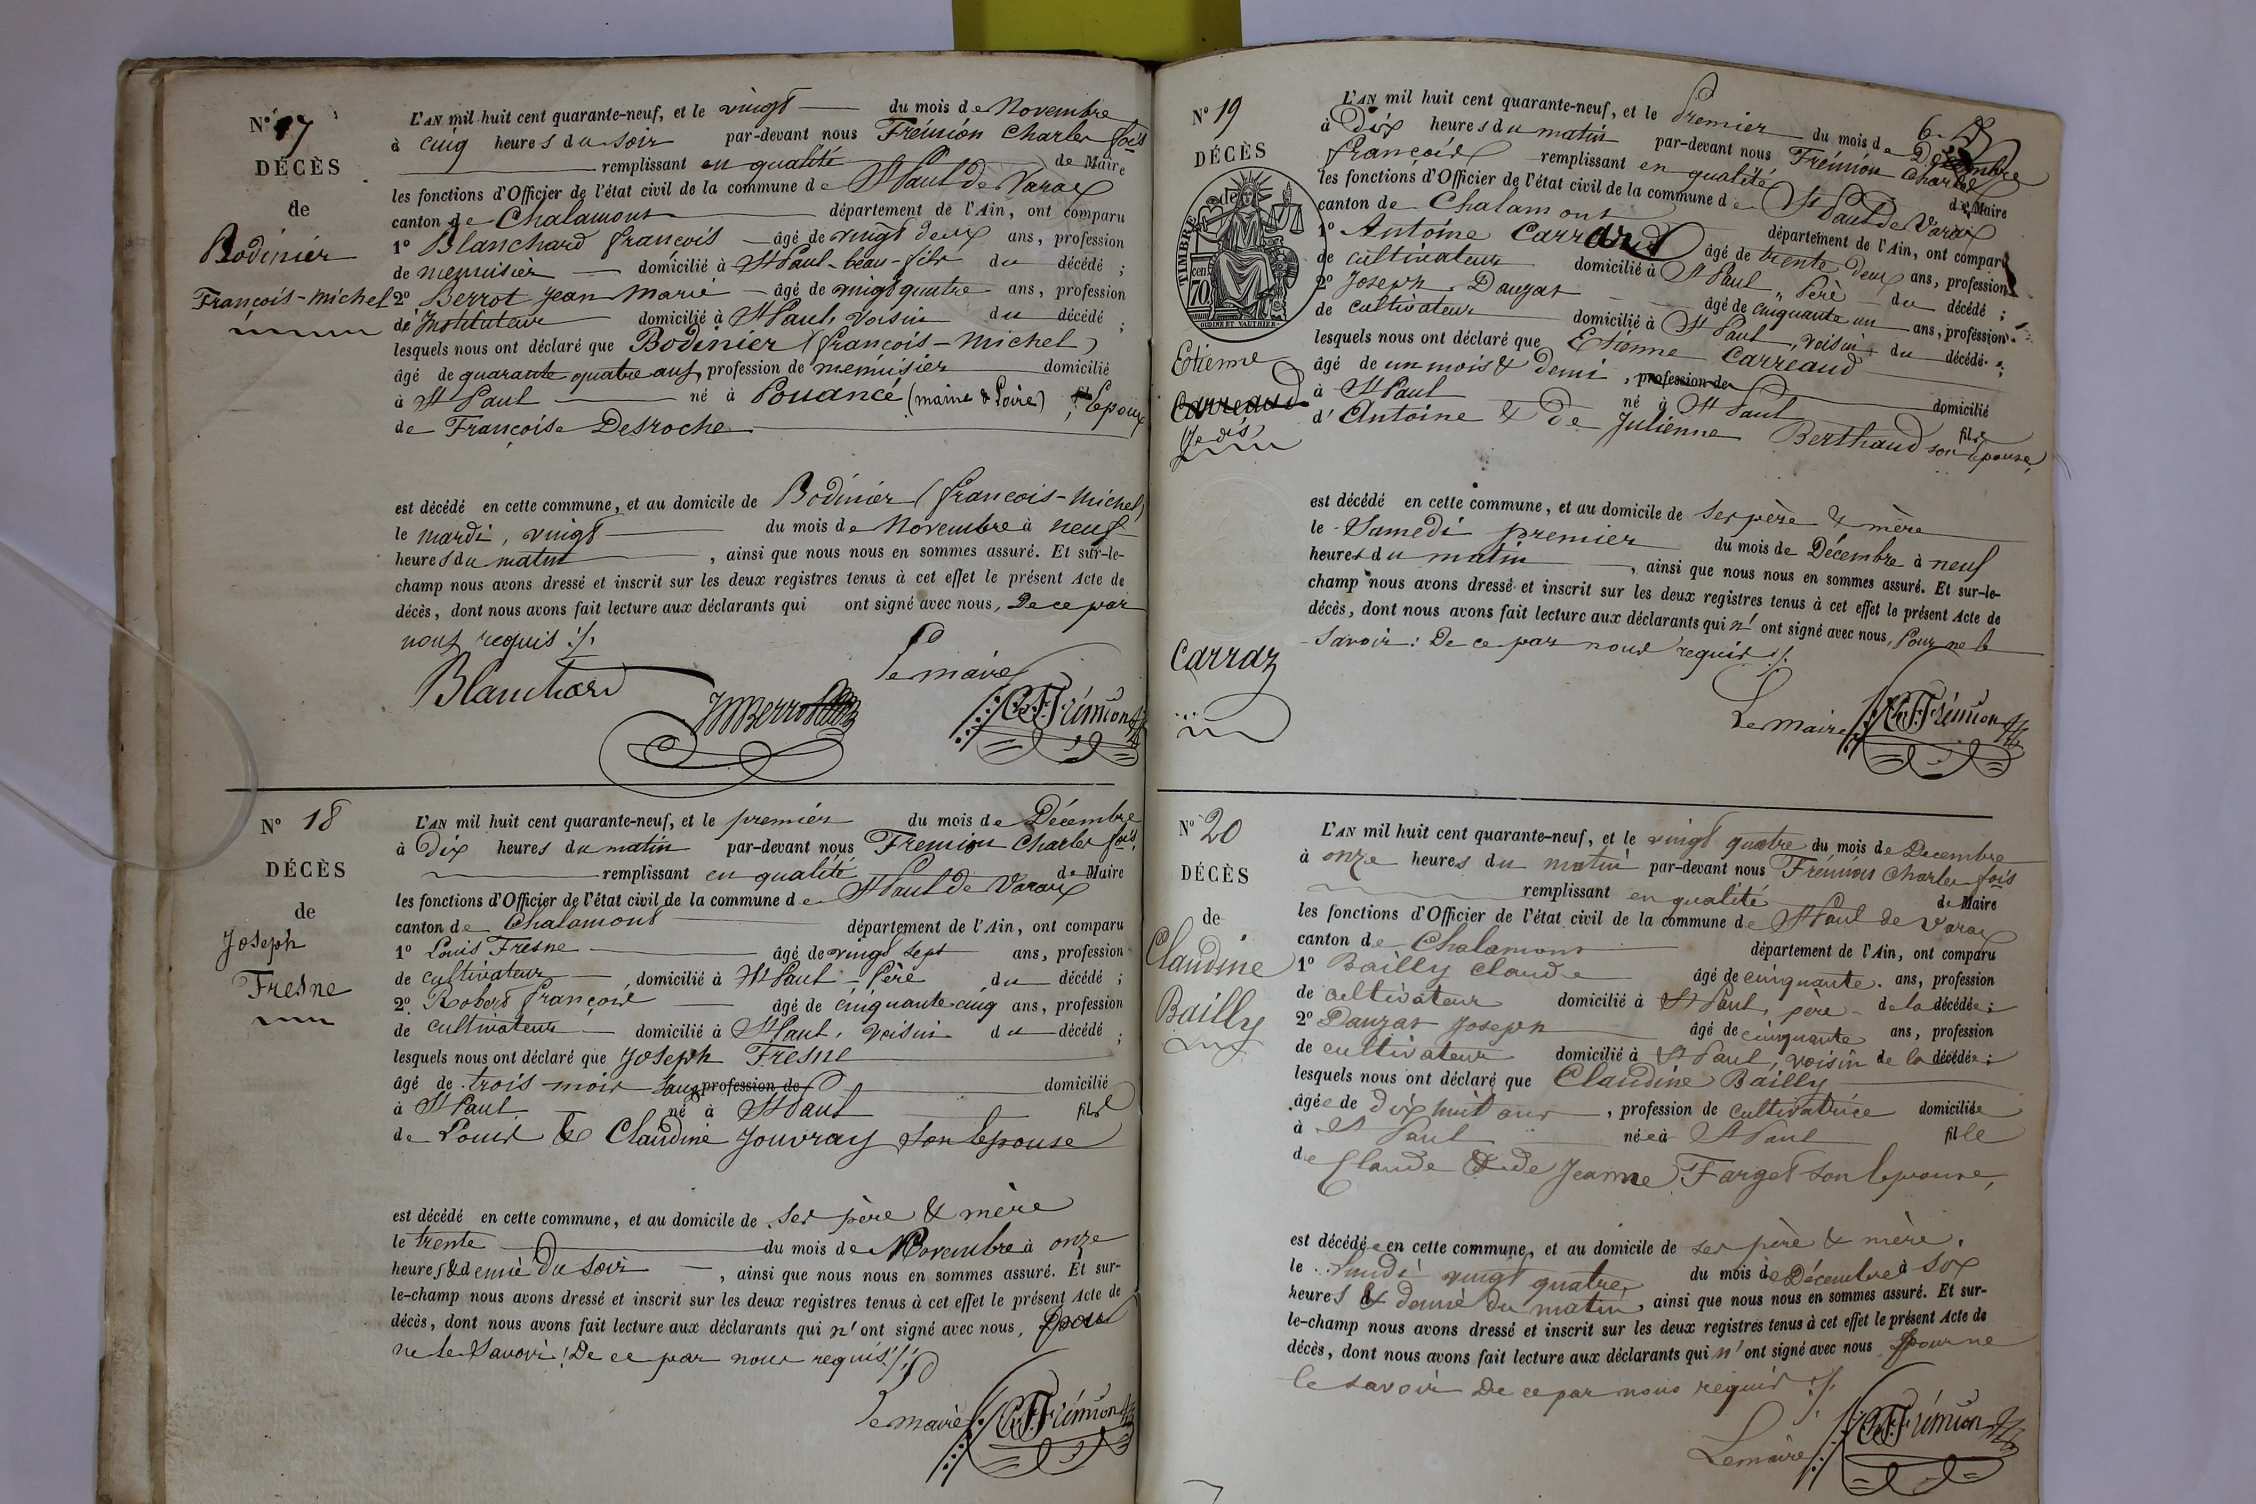 N° 17
DÉCÈS
de
Bodinier
François-Michel
L'AN mil huit cent quarante-neuf, et le vingt du mois de Novembre
à cinq heures du soir par-devant nous Frémion Charles fois
remplissant en qualité de Maire
les fonctions d'Officier de l'état civil de la commune de St Paul de Varax
canton de Chalamont département de l'Ain, ont comparu
1° Blanchard françois âgé de vingt deux ans, profession
de menuisier domicilié à St Paul - beau-fils du décédé ;
2° Berrot Jean Marie âgé de vingt quatre ans, profession
de Instituteur domicilié à St Paul, voisin du décédé ;
lesquels nous ont déclaré que Bodinier (françois-Michel)
âgé de quarante quatre ans, profession de menuisier domicilié
à St Paul né à Pouancé (maine & Loire) fil ; Epoux
de Françoise Desroche
est décédé en cette commune, et au domicile de Bodinier (françois-Michel)
le mardi, vingt du mois de Novembre à neuf
heures du matin, ainsi que nous nous en sommes assuré. Et sur-le-
champ nous avons dressé et inscrit sur les deux registres tenus à cet effet le présent Acte de
décès, dont nous avons fait lecture aux déclarants qui ont signé avec nous, De ce par
nous requis ./.
Le maire
Blanchard JMBerrot ChFrémion
N° 18
DÉCÈS
de
Joseph
Fresne
L'AN mil huit cent quarante-neuf, et le premier du mois de Décembre
à Dix heures du matin par-devant nous Fremion Charles fois
remplissant en qualité de Maire
les fonctions d'Officier de l'état civil de la commune de St Paul de Varax
canton de Chalamont département de l'Ain, ont comparu
1° Louis Fresne âgé de vingt sept ans, profession
de cultivateur domicilié à St Paul - Père du décédé ;
2° Robert françois âgé de cinquante-cinq ans, profession
de cultivateur domicilié à St Paul, voisin du décédé ;
lesquels nous ont déclaré que Joseph Fresne
âgé de trois mois sans profession de domicilié
à St Paul né à St Paul fils
de Louis & Claudine Jouvray son Epouse
est décédé en cette commune, et au domicile de ses père & mère
le trente du mois de Novembre à onze
heures & demie du soir, ainsi que nous nous en sommes assuré. Et sur-
le-champ nous avons dressé et inscrit sur les deux registres tenus à cet effet le présent Acte de
décès, dont nous avons fait lecture aux déclarants qui n'ont signé avec nous, pour
ne le savoir : De ce par nous requis ./.
Le maire ChFrémion
N° 19
DÉCÈS
de
TIMBRE
70 cen
OUDINE ET VAUTHIER
Etienne
Carreaud
Je dis
Carraz
L'AN mil huit cent quarante-neuf, et le Premier du mois de Décembre
à Dix heures du matin par-devant nous Frémion Charles
françois remplissant en qualité de Maire
les fonctions d'Officier de l'état civil de la commune de St Paul de Varax
canton de Chalamont département de l'Ain, ont comparu
1° Antoine Carraz âgé de trente deux ans, profession
de cultivateur domicilié à St Paul, Père du décédé ;
2° Joseph Dauzat âgé de cinquante un ans, profession
de cultivateur domicilié à St Paul, voisin du décédé ;
lesquels nous ont déclaré que Etienne Carreaud
âgé de un mois & demi, profession de domicilié
à St Paul né à St Paul fils
d'Antoine & de Julienne Berthaud son Epouse,
est décédé en cette commune, et au domicile de ses père & mère
le Samedi premier du mois de Décembre à neuf
heures du matin, ainsi que nous nous en sommes assuré. Et sur-le-
champ nous avons dressé et inscrit sur les deux registres tenus à cet effet le présent Acte de
décès, dont nous avons fait lecture aux déclarants qui n'ont signé avec nous, Pour ne le
savoir : De ce par nous requis ./.
Le maire ChFrémion
N° 20
DÉCÈS
de
Claudine
Bailly
L'AN mil huit cent quarante-neuf, et le vingt quatre du mois de Décembre
à onze heures du matin par-devant nous Frémion Charles fois
remplissant en qualité de Maire
les fonctions d'Officier de l'état civil de la commune de St Paul de Varax
canton de Chalamont département de l'Ain, ont comparu
1° Bailly Claude âgé de cinquante ans, profession
de cultivateur domicilié à St Paul, père de la décédée ;
2° Dauzat Joseph âgé de cinquante ans, profession
de cultivateur domicilié à St Paul, voisin de la décédée ;
lesquels nous ont déclaré que Claudine Bailly
âgée de dix huit ans, profession de cultivatrice domiciliée
à St Paul née à St Paul fille
de Claude & de Jeanne Farget son Epouse,
est décédée en cette commune, et au domicile de ses père & mère,
le Lundi vingt quatre, du mois de Décembre à six
heures & demie du matin, ainsi que nous nous en sommes assuré. Et sur-
le-champ nous avons dressé et inscrit sur les deux registres tenus à cet effet le présent Acte de
décès, dont nous avons fait lecture aux déclarants qui n'ont signé avec nous pour ne
le savoir De ce par nous requis ./.
Le maire ChFrémion